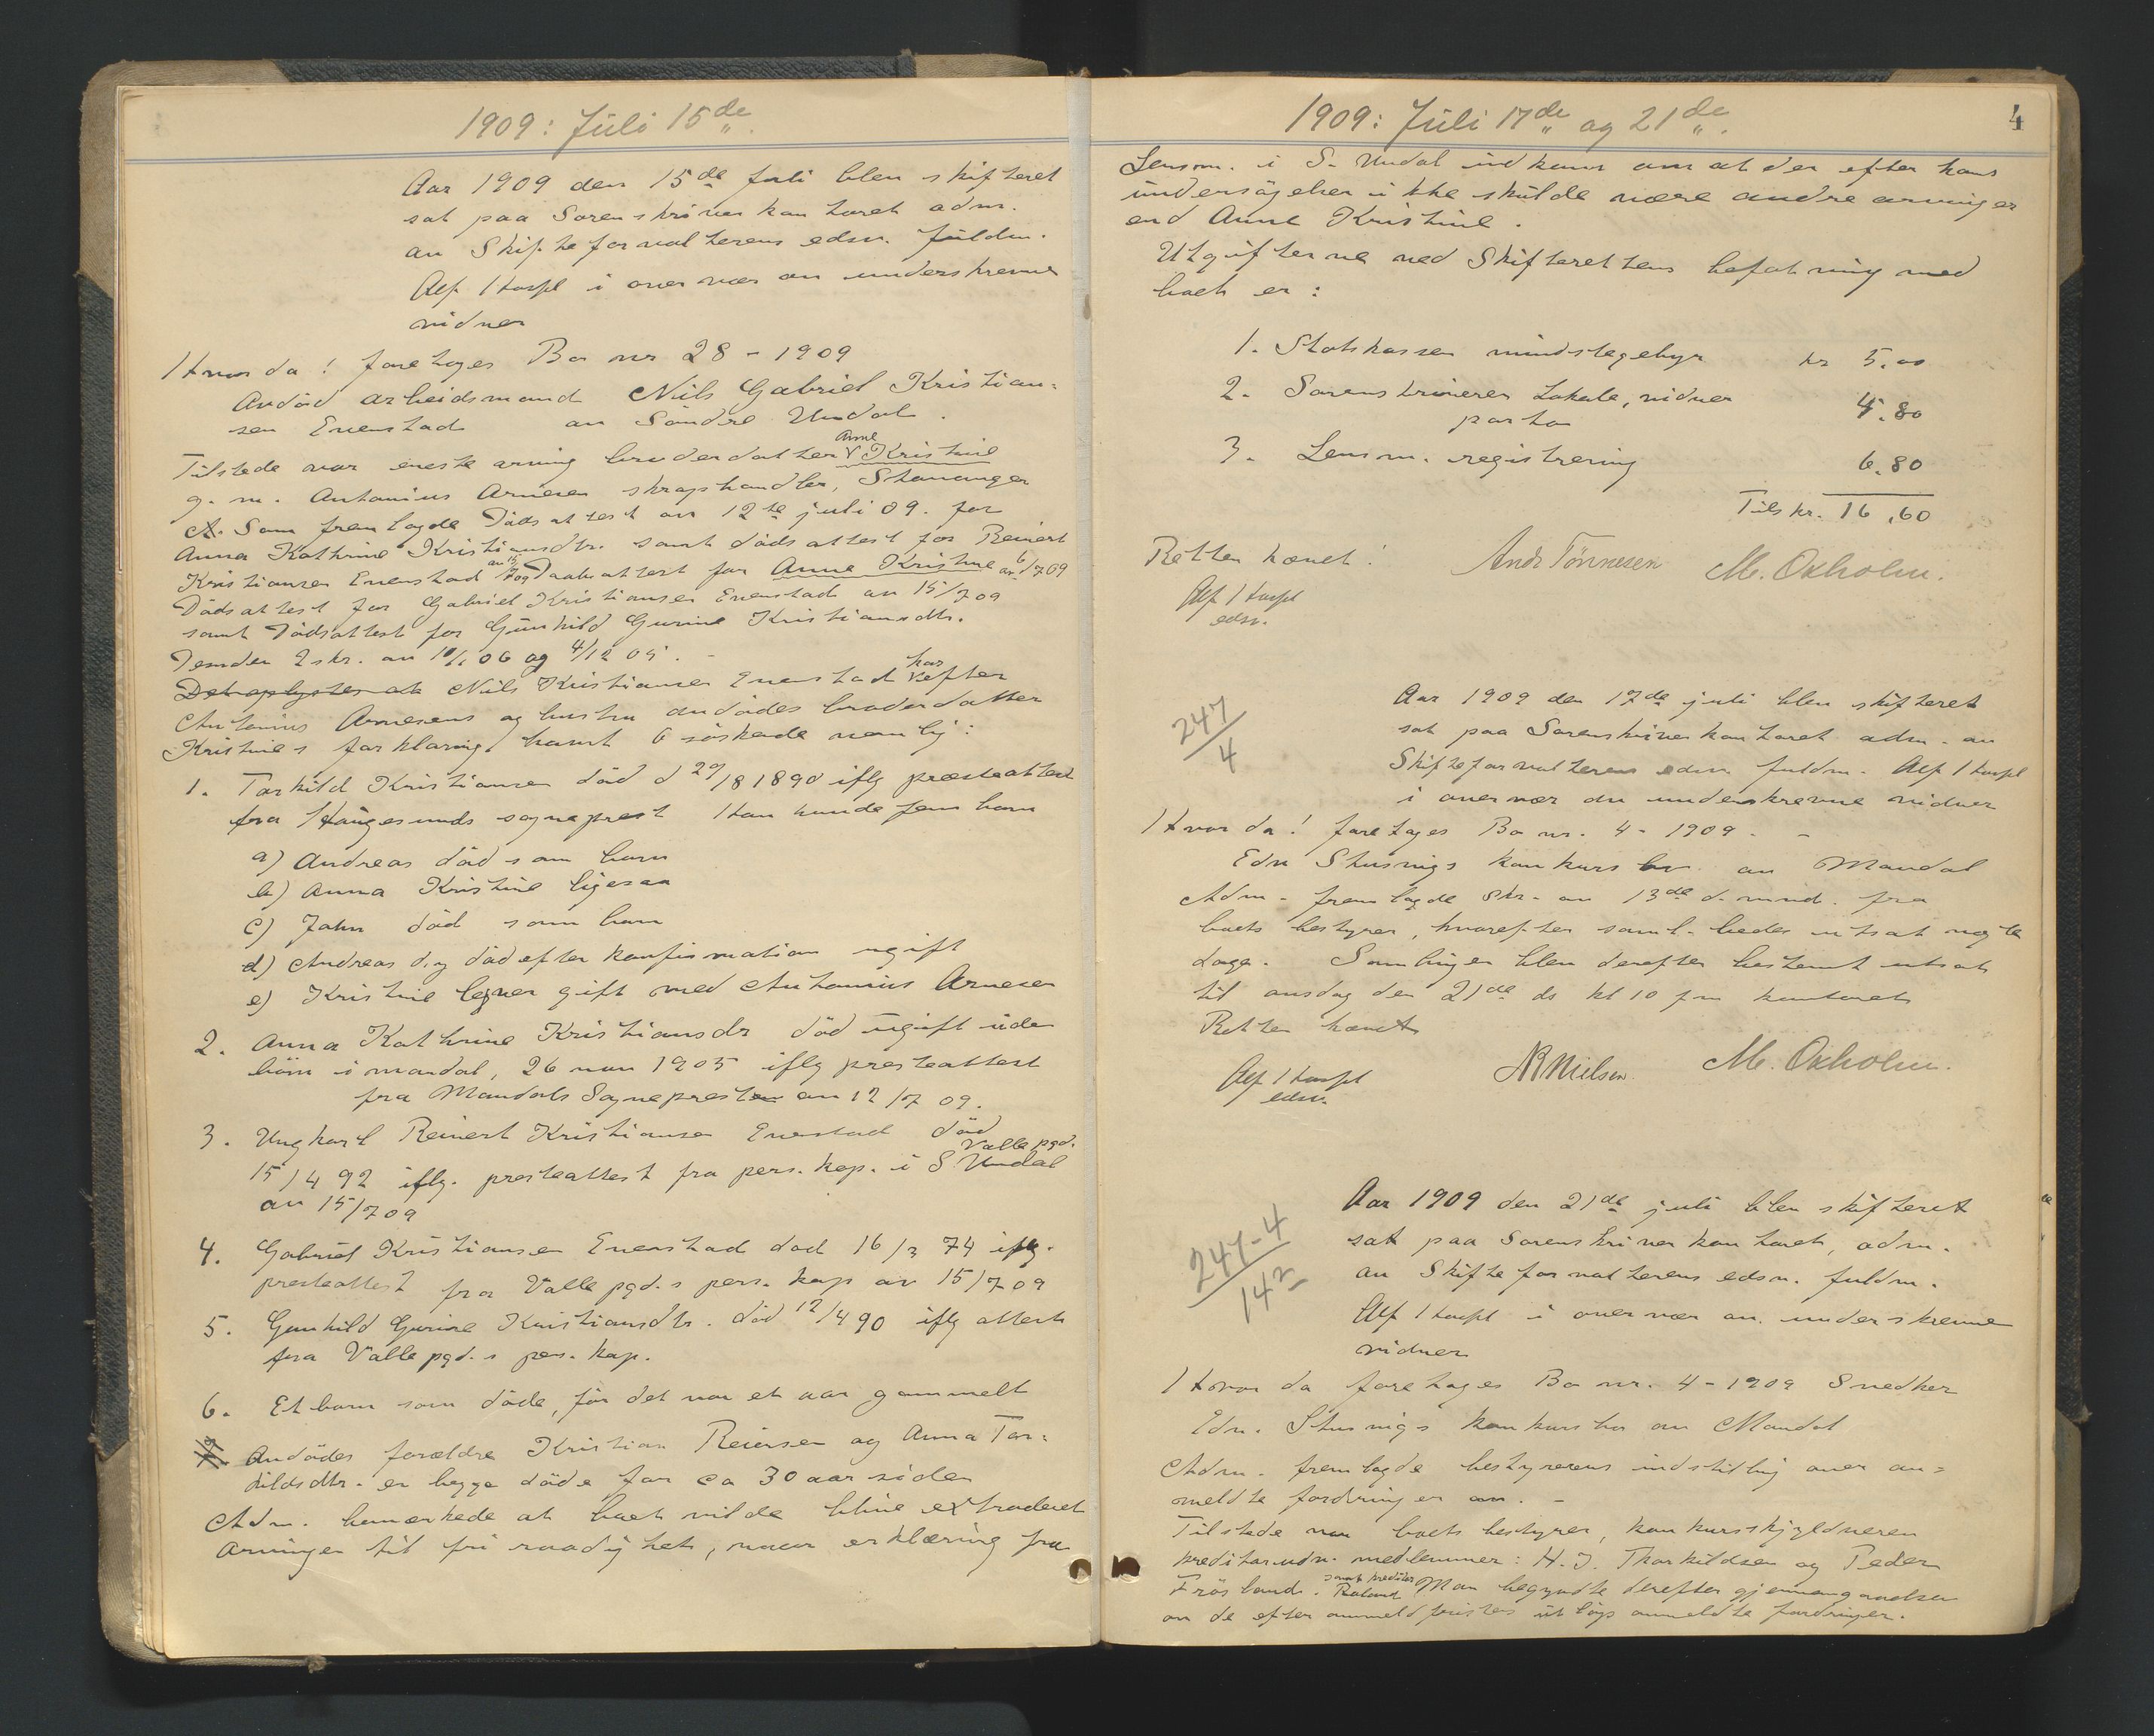 1909: Juli 15de
Aar 1909 den 15de juli blev skifteret
sat paa Sorenskriverkontoret adm.
av Skifteforvalterens edsv. fuldm.
Alf Harpl i overvær av underskrevne
vidner
Hvorda! foretages Bo nr 28 - 1909
Avdød arbeidsmand Nils Gabriel Kristian-
sen Evenstad av Söndre Undal.
Tilstede var eneste arving broderdatter Anne Kristine
g. m. Antonius Arnesen skraphandler, Stavanger
Som fremlagde Dödsattest av 12te juli 09. for
Anna Kathrine Kristiansdtr. samt dödsattest for Reinert
Kristiansen Evenstad av 15/7 09 Daabsattest for Anne Kristine av 6/7 09
Dödsattest for Gabriel Kristiansen Evenstad av 15/7 09
samt Dödsattest for Gunhild Gurine Kristiansdtr.
Desuden 2 skr. av 10/1 06 og 4/12 05. -
Det oplystes at Nils Kristiansen Evenstad har efter
Antonius Arnesens og hustru avdödes broderdatter
Kristines forklaring havt 6 söskende nemlig:
1. Torkild Kristiansen död d 29/8 1890 iflg præsteattest
fra Haugesunds sogneprest Han havde fem barn
a) Andreas död som barn
b) Anna Kristine ligesaa
c) John död som barn
d) Andreas d.y död efter konfirmation ugift
e) Kristine lever gift med Antonius Arnesen
2. Anna Kathrine Kristiansdr död ugift uden
börn i mandal, 26 nov 1905 iflg presteattest
fra Mandals Sogneprest av 12/7 09.
3. Ungkarl Reinert Kristiansen Evenstad död
15/4 92 iflg. presteattest fra pers. kap. i S. Undal Valle pgd.
av 15/7 09
4. Gabriel Kristiansen Evenstad död 16/3 74 iflg.
presteattest fra Valle pgd.s pers. kap av 15/7 09
5. Gunhild Gurine Kristiansdtr. död 12/4 90 iflg attest
fra Valle pgd.s pers. kap.
6. Et barn som döde, før det var et aar gammelt
Avdödes forældre Kristian Reiersen og Anna Tor-
kildsdtr. er begge döde for ca 30 aar siden
Adm. bemerkede at boet vilde blive extraderet
Arvingen til fri raadighet, naar erklæring fra
1909: Juli 17de og 21de.
4
Lensm. i S. Undal indkom om at der efter hans
undersögelser ikke skulde være andre arvinger
end Anne Kristine.
Utgifterne ved Skifterettens befatning med
boet er:
1. Statskassen mindstegebyr kr 5.00
2. Sorenskriveren Lokale, vidner
porto 4.80
3. Lensm. registrering 6.80
Tils kr. 16.60
Retten hævet!
Andr Tönnesen M. Oxholm.
Alf Harpl
edsv.
247/4
Aar 1909 den 17de juli blev skifteret
sat paa Sorenskriverkontoret adm. av
Skifteforvalterens edsv. fuldm. Alf Harpl
i overvær av underskrevne vidner
Hvorda! foretages Bo nr. 4 - 1909. -
Edv Stusvigs konkursbo av Mandal
Adm. fremlagde skr. av 13de d. mnd. fra
boets bestyrer, hvorefter saml. bedes utsat nogle
dage. Samlingen blev derefter bestemt utsat
til onsdag den 21de ds kl 10 fm kontoret
Retten hævet
Alf Harpl
edsv.
NB Nielsen. M. Oxholm.
247-4/142
Aar 1909 den 21de juli blev skifteret
sat paa Sorenskriverkontoret, adm.
av Skifteforvalterens edsv. fuldm.
Alf Harpl i overvær av. underskrevne
vidner
Hvor da foretages Bo nr. 4 - 1909 Snedker
Edv. Stusvigs konkursbo av Mandal
Adm. fremlagde bestyrerens indstilling over an-
meldte fordringer. -
Tilstede var boets bestyrer, konkursskyldneren
kreditorudv. medlemmer: H. J. Thorkildsen og Peder
Frösland. samt kreditor Röland Man begyndte derefter gjennemgaaelsen
av de efter anmeldfristens utlöp anmeldte fordringer.